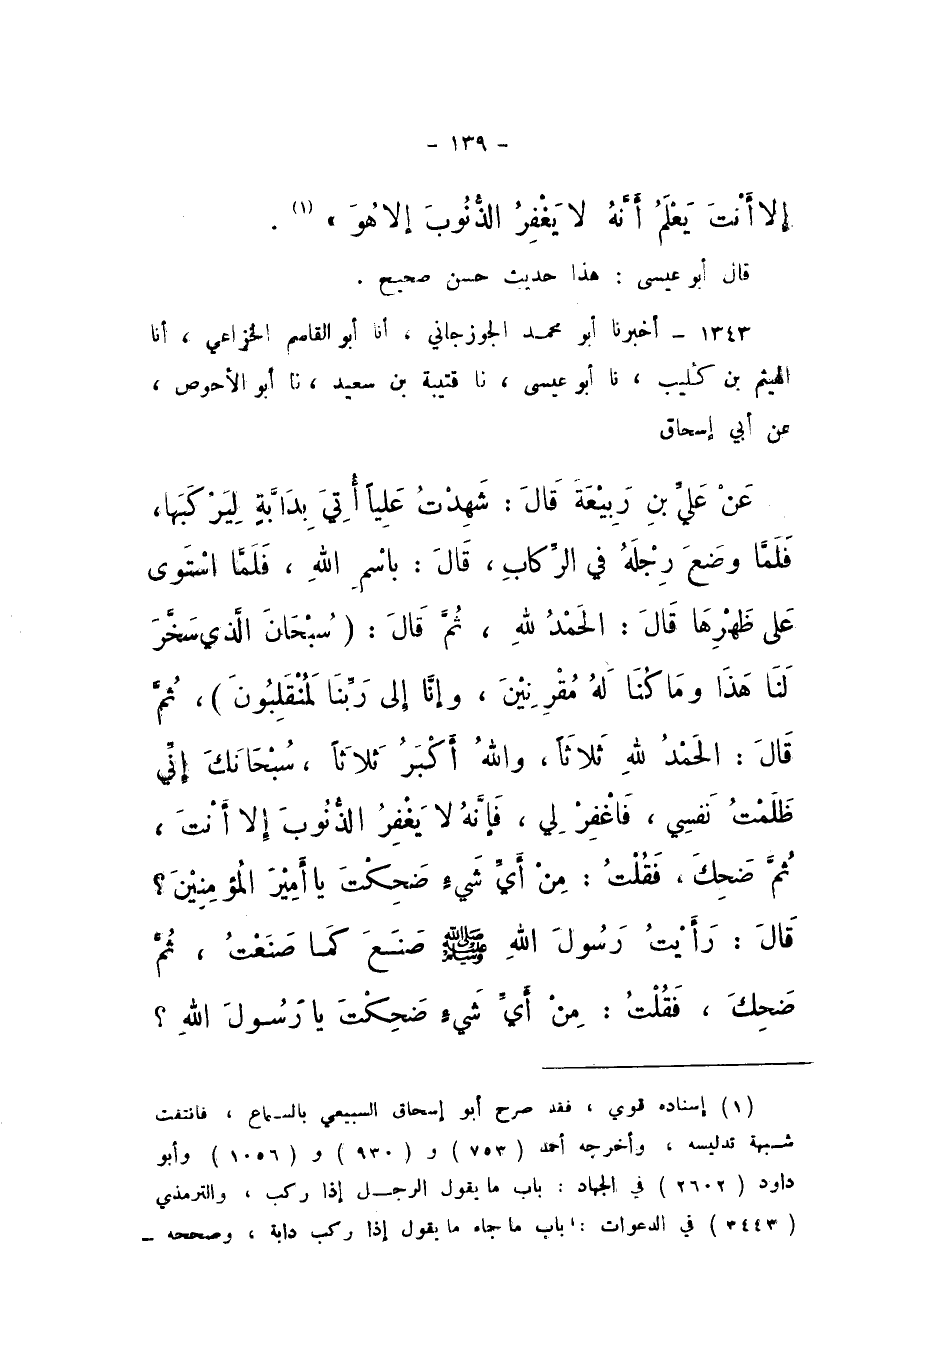 - ١٣٩ -
إلا أَنْتَ يَعْلَمُ أَنَّهُ لا يَغْفِرُ الذُّنُوبَ إلا هُوَ » (١) .
قال أبو عيسى : هذا حديث حسن صحيح .
١٣٤٣ - أخبرنا أبو محمد الجوزجاني ، أنا أبو القاسم الخزاعي ، أنا
الهيثم بن كُليب ، نا أبو عيسى ، نا قتيبة بن سعيد ، نا أبو الأحوص ،
عن أبي إسحاق
عَنْ عَليِّ بنِ رَبِيْعَةَ قَالَ : شَهِدْتُ عَلِياً أُتِيَ بِدَابَّةٍ لِيَرْكَبَها،
فَلَمَّا وضَعَ رِجْلَهُ في الرِّكابِ، قَالَ : باسْمِ اللهِ ، فَلَمَّا اسْتَوى
عَلى ظَهْرِهَا قَالَ : الحَمْدُ للهِ ، ثُمَّ قَالَ : ( سُبْحَانَ الَّذي سَخَّرَ
لَنَا هَذَا ومَا كُنَا لَهُ مُقْرِنِيْنَ ، وإنَّا إلى رَبِّنَا لَمُنْقَلِبُونَ ) ، ثُمَّ
قَالَ : الحَمْدُ للهِ ثَلاثَاً ، واللهُ أَكْبَرُ ثَلاثَاً ، سُبْحَانَكَ إنِّي
ظَلَمْتُ نَفسِي ، فَاغْفِرْ لِي ، فَإنَّهُ لا يَغْفِرُ الذُّنُوبَ إلا أَنْتَ ،
ثُمَّ ضَحِكَ ، فَقُلْتُ : مِنْ أَيِّ شَيءٍ ضَحِكْتَ يا أَمِيْرَ المُؤمِنِيْنَ ؟
قَالَ : رَأَيْتُ رَسُولَ اللهِ ﷺ صَنَعَ كَمَا صَنَعْتُ ، ثُمَّ
ضَحِكَ ، فَقُلْتُ : مِنْ أَيِّ شَيءٍ ضَحِكْتَ يا رَسُولَ اللهِ ؟
(١) إسناده قوي ، فقد صرح أبو إسحاق السبيعي بالسماع ، فانتفت
شبهة تدليسه ، وأخرجه أحمد ( ٧٥٣ ) و ( ٩٣٠ ) و ( ١٠٥٦ ) وأبو
داود ( ٢٦٠٢ ) في الجهاد : باب ما يقول الرجل إذا ركب ، والترمذي
( ٣٤٤٣ ) في الدعوات : باب ما جاء ما يقول إذا ركب دابة ، وصححه -